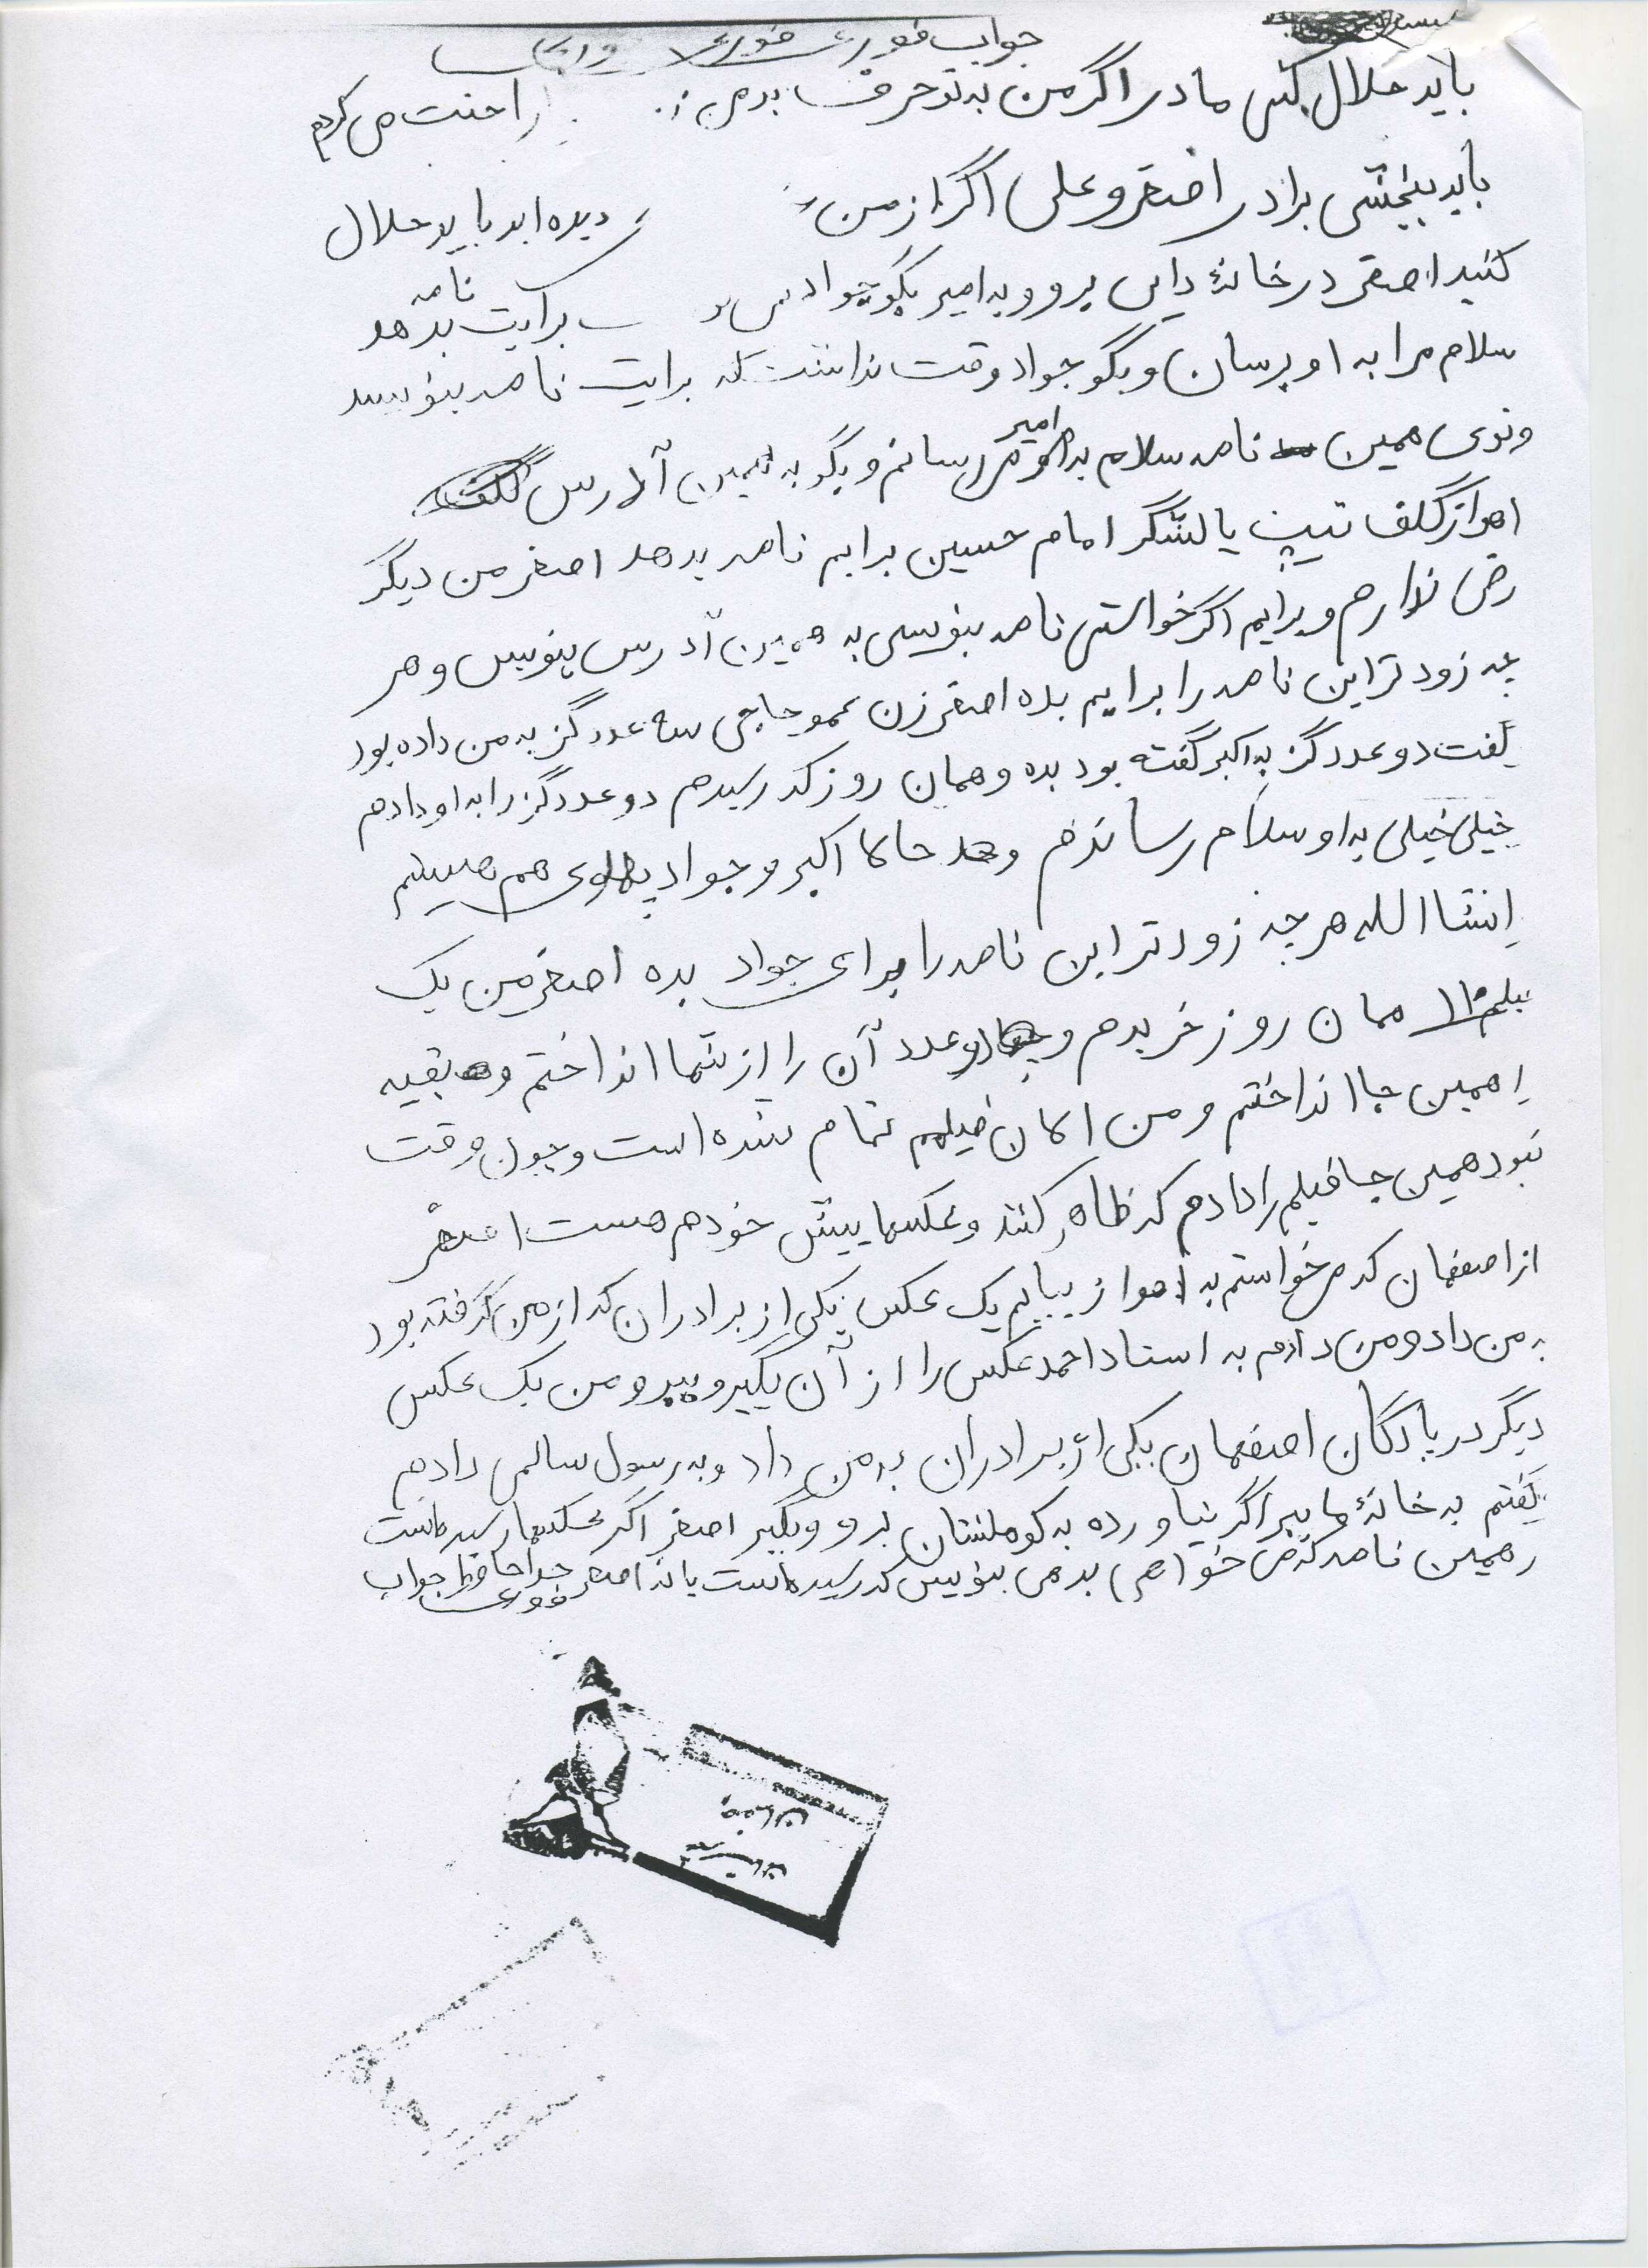 جواب فوری فوری
باید حلال کنی مادر اگر من به تو حرف بدی راحت می کردم
باید ببخشی برادر اصغر و علی اگر از من دیده اید باید حلال
کنید اصغر در خانهٔ دایی برو و به امیر بگو جواد برایت نامه بدهد
سلام مرا به او برسان و بگو جواد وقت نداشت که برایت نامه بنویسد
و توی همین نامه سلام به امیر می رسانم و بگو به همین آدرس
اهواز گلف تیپ یا لشگر امام حسین برایم نامه بدهد اصغر من دیگر
رضی ندارم و برایم اگر خواستی نامه بنویسی به همین آدرس بنویس و هر
چه زودتر این نامه را برایم بده اصغر زن عمو حاجی سه عدد گز به من داده بود
گفت دو عدد گز به اکبر گفته بود بده و همان روز که رسیدم دو عدد گز را به او دادم
خیلی خیلی به او سلام رساندم و حالا اکبر و جواد پهلوی هم هستیم
انشاالله هر چه زودتر این نامه را برای جواد بده اصغر من یک
فیلم ۱۱۰ همان روز خریدم و عدد آن را از شما انداختم و بقیه
همین جا انداختم و من الان فیلمم تمام شده است و چون وقت
نبود همین جا فیلم را دادم که ظاهر کنند و عکسها پیش خودم هست اصغر
از اصفهان که می خواستم به اهواز بیایم یک عکس یکی از برادران که از من گرفته بود
به من داد و من دادم به استاد احمد عکس را از آن بگیر و ببر و من یک عکس
دیگر در پادگان اصفهان یکی از برادران به من داد و به رسول سالمی دادم
گفتم به خانهٔ ما ببر اگر نیاورده به کوهلنستان برو و بگیر اصغر اگر عکسها رسیده است
همین نامه که می خواهی بدهی بنویس که رسیده است یا نه اصغر خداحافظ جواب
فوری